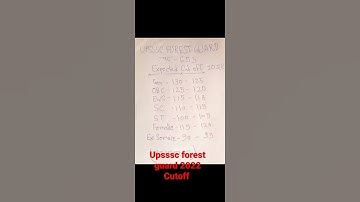 UPSSSC FOREST GUARD
Expected Cutoff 2022
Gen - 130 - 125
OBC - 125 - 120
EWS - 115 - 118
SC - 110 - 115
ST - 100 - 105
Female - 115 - 120
Ex Service - 90 - 95
Upsssc forest
guard 2022
Cutoff